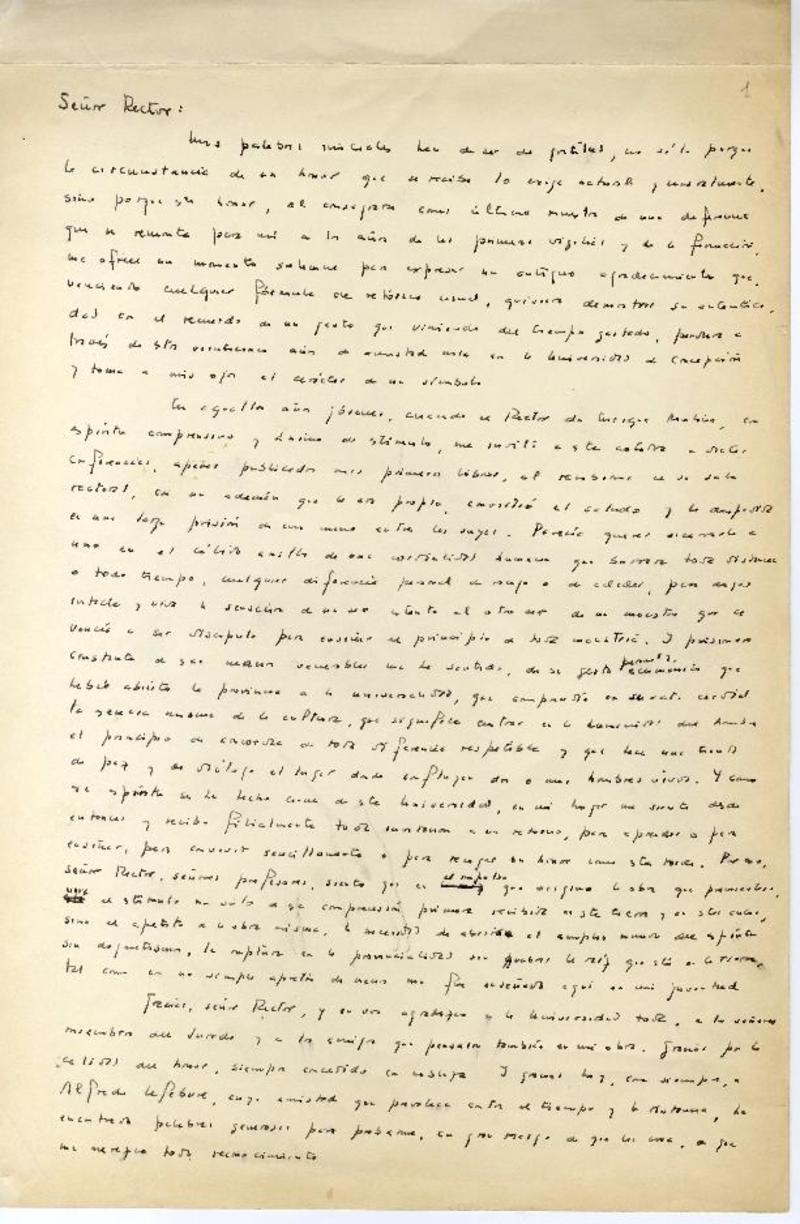 1
Señor Rector:
Mis palabras iniciales han de ser de gratitud, no sólo porque
la circunstancia de un honor que se recibe lo exige natural y
sino porque este honor, al consagrar como última muestra de una
que se remonta para mí a los años de las primeras vigilias y de la formación,
me ofrece un momento solemne para expresar un antiguo agradecimiento que,
venciendo cualquier fórmula de retórica usual, quisiera demostrar su autentici-
dad en el recuerdo de un gesto que viniendo del tiempo gastado, perdura a
través de estos veinticinco años de amistad mía en la Universidad de Concepción
y toma a mis ojos el carácter de un símbolo
En aquellos años jóvenes, cuando el Rector don Enrique Molina, con
espíritu comprensivo y ánimo de estímulo, me invitó a esta cátedra a dictar
conferencias, apenas publicados mis primeros libros, al recibirme en su sala
rectoral, con un ademán que le era propio, convirtió el saludo y la despedida
en una larga prisión de una mano entre las suyas. Parecía querer encerrarlo a
uno en el cálido anillo de una cordialidad humana que borrara toda distancia
o todo tiempo, cualquier diferencia personal de rango o de calidad, para dejar
intacta y viva la sensación de un ser atento al otro ser de un maestro que se
vencía a ser discípulo para enseñar el principio de toda maestría. Y prisionero
constante de esas manos venerables me he sentido, de su gesto que
había abierto la provincia a la universalidad, que comprendía en su cordial
la esencia misma de la cultura, que significa centrar en la humanidad del hombre
el principio de concordia de toda diferencia respetable y que hace una tienda
de paz y de diálogo el lugar donde confluyen dos o más hombres vivos. Y como
ese espíritu se ha hecho carne de esta Universidad, en mi hogar me siento desde
entonces y recibo filialmente toda invitación a un retorno, para aprender o para
enseñar, para convivir sencillamente o para recoger un honor como esta tarde. Por eso,
señor Rector, señores profesores, siento que en el impulso que origina la obra que
el estímulo no sólo de esa comprensión primera recibida en esta tierra y en estas aulas,
sino el apetito de la obra misma, la necesidad de abrirse al amplio mundo del espíritu
sin dogmatismos, la ruptura con la provincialidad sin quebrar la raíz que está en la tierra,
tal como en un simple apretón de manos me fue enseñado aquí en mi juventud
Gracias, señor Rector, y en vos agradezco a la Universidad toda, a los señores
miembros del Jurado y a los amigos que pensaron también en mi obra. Gracias por la
calidad del honor, siempre concedido en Y gracias hoy, como siempre, a
Alfredo Lefebvre, cuya amistad que prevalece entre el tiempo y la distancia, ha
encontrado palabras generosas para probarme, con gran riesgo de que las crea, o que
me merezca todo reconocimiento